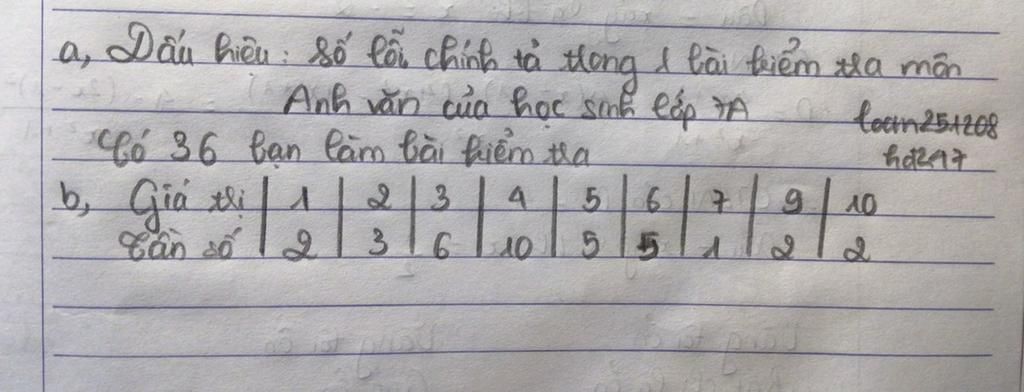 a, Dấu hiệu: Số lỗi chính tả trong 1 bài kiểm tra môn
Anh văn của học sinh lớp 7A
toan251208
Có 36 bạn làm bài kiểm tra
hd247
b, Giá trị | 1 | 2 | 3 | 4 | 5 | 6 | 7 | 9 | 10
Tần số | 2 | 3 | 6 | 10 | 5 | 5 | 1 | 2 | 2